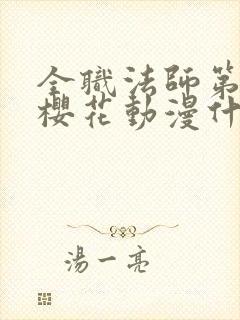 全職法師第
櫻花動漫什
湯一亮